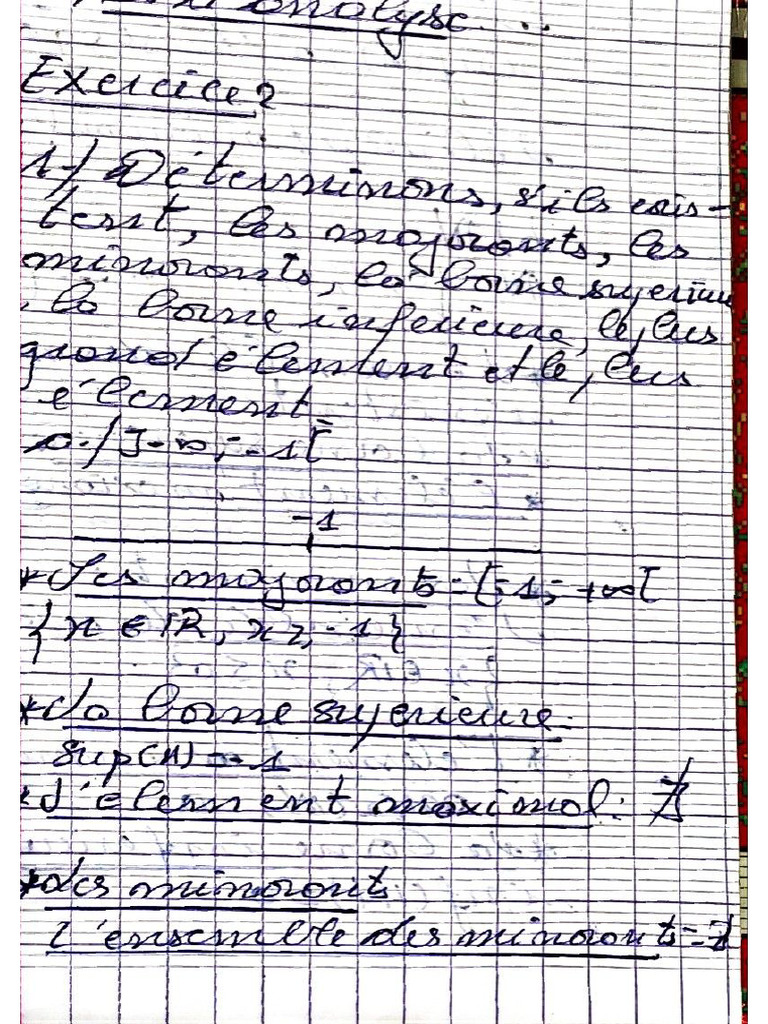 analyse
Exercice 2
1-/ Déterminons, s'ils exis-
tent, les majorants, les
minorants, la borne superieure
, la borne inferieure, le plus
grand élement et le plus
élement.
a-/ ]-∞; -1[
-1
*Les majorants = [-1; +∞[
{x ∈ IR, x ≥ -1}
*La borne superieure:
sup(A) = -1
*L'element maximal: ∄
*Les minorants
l'ensemble des minorants =